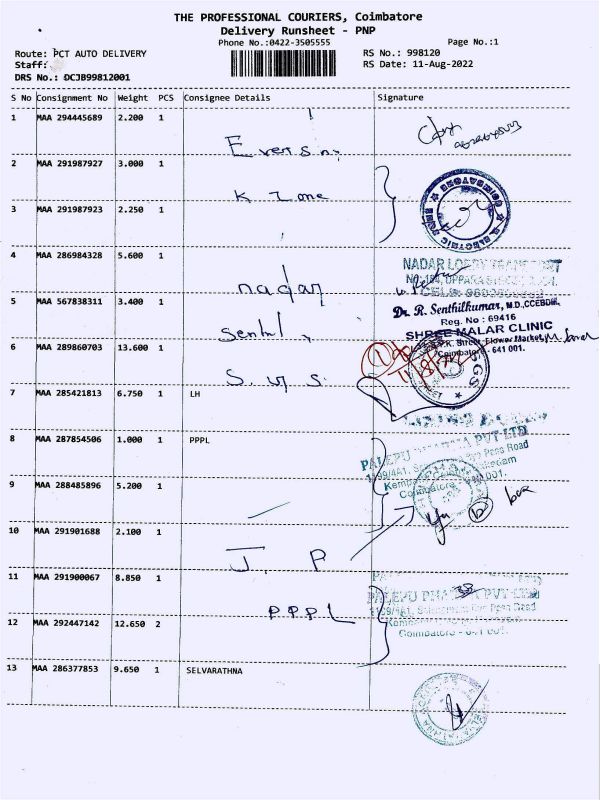 THE PROFESSIONAL COURIERS, Coimbatore
Delivery Runsheet - PNP
Phone No.:0422-3505555
Page No.:1
Route: PCT AUTO DELIVERY
RS No.: 998120
Staff:
RS Date: 11-Aug-2022
DRS No.: DCJB99812001
S No Consignment No Weight PCS Consignee Details Signature
1 MAA 294445689 2.200 1
2 MAA 291987927 3.000 1
K Zone
3 MAA 291987923 2.250 1
4 MAA 286984328 5.600 1
nadar
NADAR LORRY TRANSPORT
5 MAA 567838311 3.400 1
Senthil
Dr. R. Senthilkumar, M.D.,CCEBDM.,
Reg. No : 69416
SHREE MALAR CLINIC
Street, Flower Market,
Coimbatore - 641 001.
6 MAA 289860703 13.600 1
7 MAA 285421813 6.750 1 LH
8 MAA 287854506 1.000 1 PPPL
PALEPU PHARMA PVT LTD
Coimbatore
9 MAA 288485896 5.200 1
10 MAA 291901688 2.100 1
J. P
11 MAA 291900067 8.850 1
PPPL
PALEPU PHARMA PVT LTD
Coimbatore
12 MAA 292447142 12.650 2
13 MAA 286377853 9.650 1 SELVARATHNA